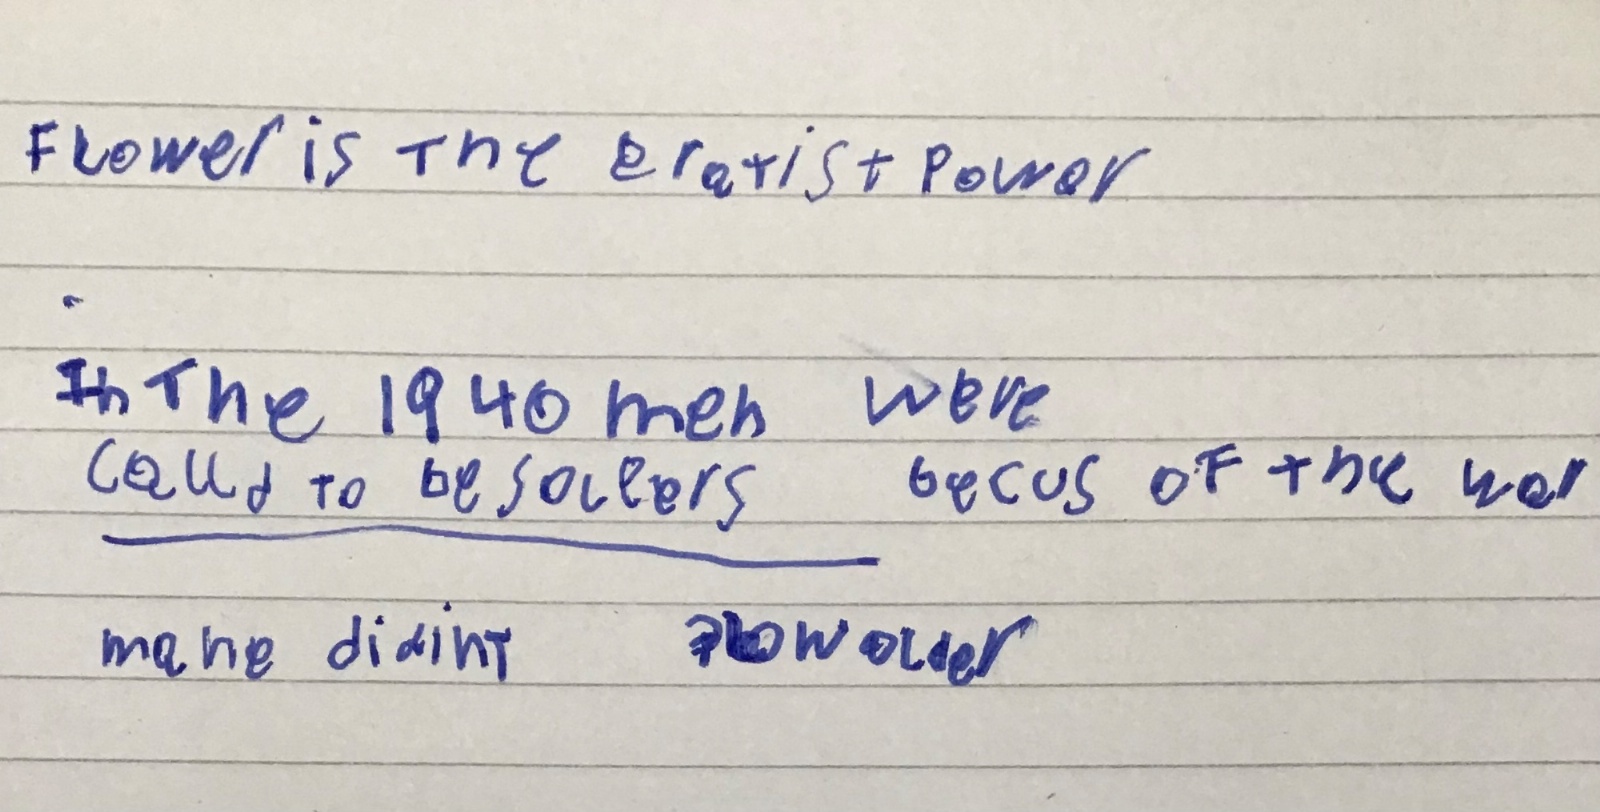 Flower is The eratist Power
In The 1940 men were
Calld to be sollers becus of the war
mane didint owolder